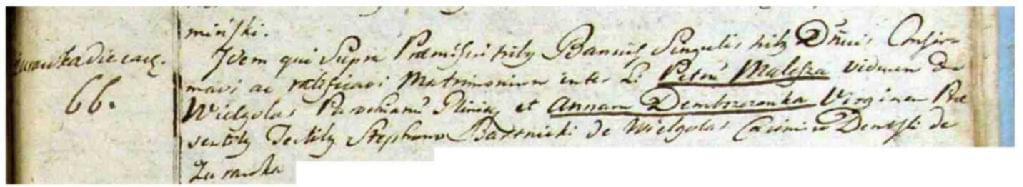 miński.
Żurawka die eadē.
Idem qui supra Praemissis tribus Bannis Singulis tribus Dnicis Confir-
66.
mavi ac ratificavi Matrimonium inter L: Petrū Malesza viduum de
Wielgolas Parochianū et Annam Dembrzezonka Virginem Prae
sentibus Testibus Stephano Bartnicki de Wielgolas Casimiro de
Żurawka